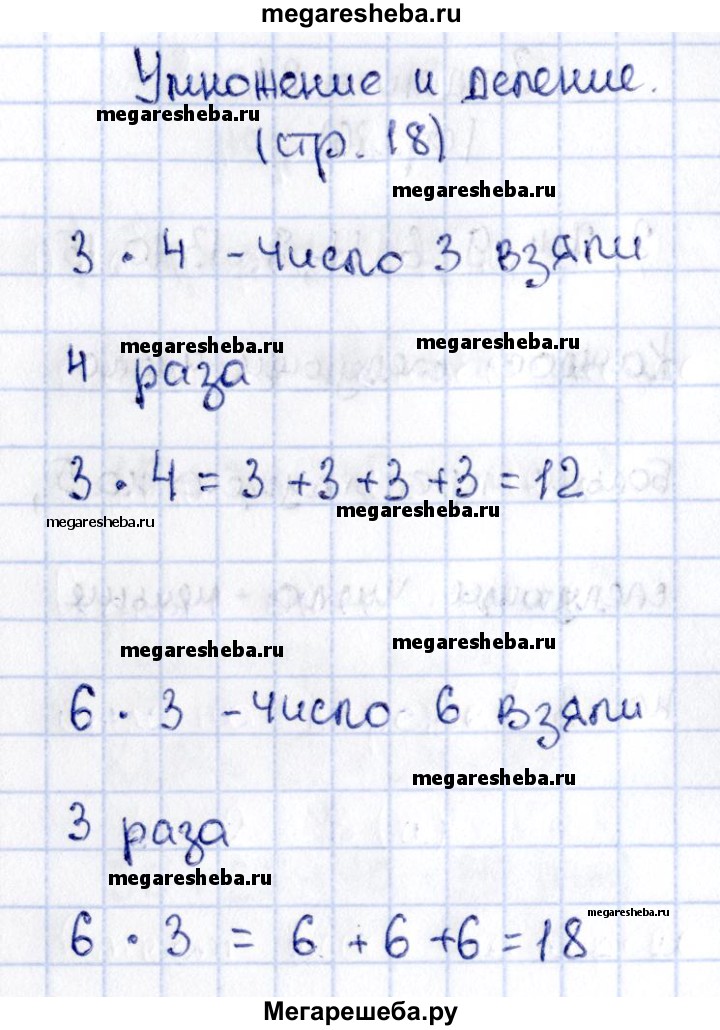 megaresheba.ru
Умножение и деление.
megaresheba.ru
(стр. 18)
megaresheba.ru
3 · 4 - число 3 взяли
megaresheba.ru
megaresheba.ru
4 раза
3 · 4 = 3 + 3 + 3 + 3 = 12
megaresheba.ru
megaresheba.ru
megaresheba.ru
megaresheba.ru
6 · 3 - число 6 взяли
megaresheba.ru
3 раза
megaresheba.ru
megaresheba.ru
6 · 3 = 6 + 6 + 6 = 18
Мегарешеба.ру